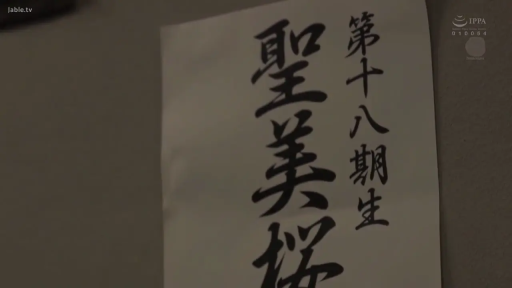 Jable.tv
IPPA
010054
第十八期生
聖美桜